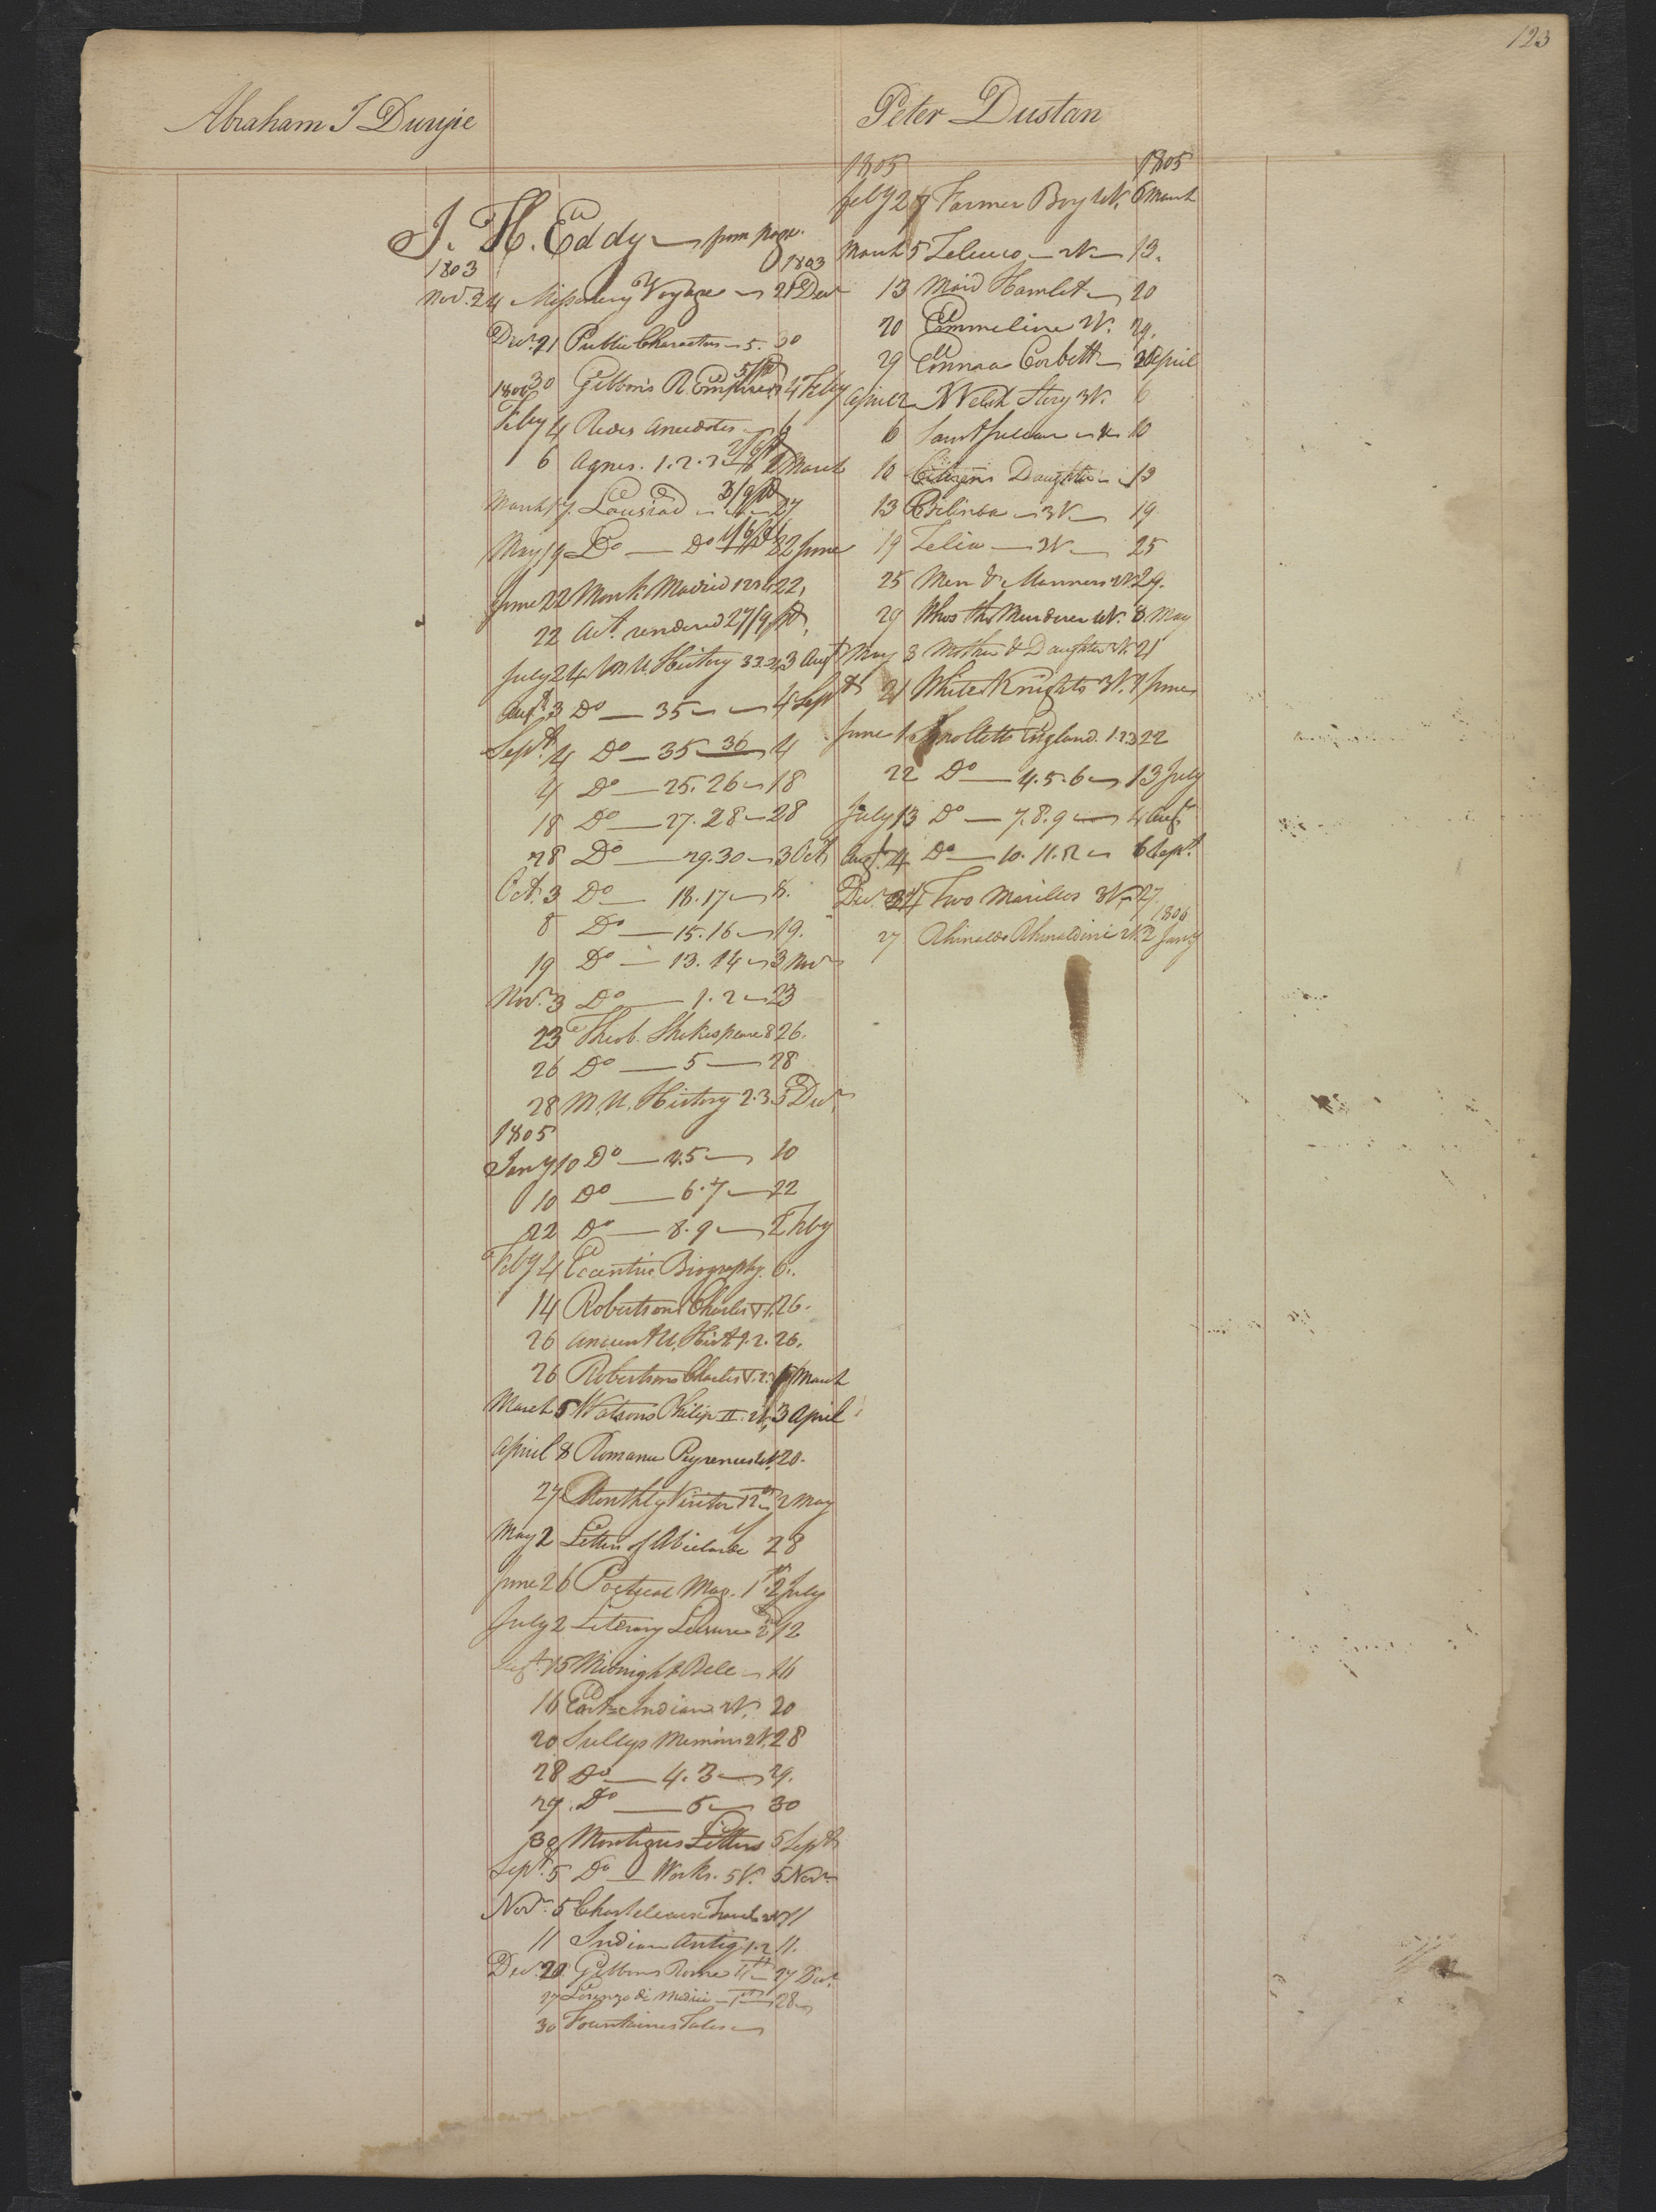 123
Abraham J Duryie
J. H. Eddy from page.
1803 1803
Nov. 24 Missionery Voyage 21 Decr
Decr. 21 Public Characters 5. 30
30 Gibbons R. Empire 5/pd 4 Feby
1804
Feby 4 Anecdotes 6
6 Agnes. 1.2.3 2/6pd March
March 17 Lousiad 3/9pd 27
May 19 Do Do 1/6pd 22 June
June 22 Monk Madrid 1234 22,
22 Act. rendered 27/9 pd,
July 24 M.U. History 33.34 3 Augt
Augt 3 Do 35 4 Sept
Sept. 4 Do 35 36 4
4 Do 25. 26 18
18 Do 27. 28 28
28 Do 29. 30 3 Oct
Oct. 3 Do 18. 17 8.
8 Do 15. 16 19.
19 Do 13. 14 3 Nov
Novr. 3 Do 1. 2 23
23 Theob. Shekespeare 8 26.
26 Do 5 28
28 M. U. History 2.3 5 Decr.
1805
Jany 10 Do 4.5 10
10 Do 6. 7 22
22 Do 8. 9 2 Feby
Feby 4 Eccentric Biography. 6.
14 Robertsons Charles V 1. 26.
26 Ancient U. Hist. 1. 2. 26.
26 Robertsons Charles V. 2. March
March 5 Watsons Philip II. 2V, 3 April
April 8 Romance Pyrenees 4V. 20.
27 Monthly Visitor 12th 2 May
May 2 Letters of Abielarde 28
June 26 Poetical Mag. 1st. 2 July
July 2 Literary Leisure 2d 12
Augt. 15 Midnight Bell 16
16 East Indian 2V. 20
20 Sullys Memoirs 2V. 28
28 Do 4. 3 29.
29. Do 5 30
30 Montagues Letters 5 Sept
Sept. 5 Do Works. 5V. 5 Novr
Novr. 5 Chasteleaux Travels 2V 11
11 Indian Antiq 1.2 11.
Decr. 20 Gibbons Rome 27 Decr.
27 Lorenzo di Medici 1st 28
30 Fountaines Tales
Peter Dustan
1805 1805
Feby 27 Farmer Boy 4V. 5 March
March 5 Zeluco 2V 13.
13 Maid Hamlet 20
20 Emmeline 2V. 29.
29 Emma Corbett 2 April
April 2 Welch Story 3V. 6
6 Saint Julian 10
10 Citizens Daughter 13
13 Belinda 3V 19
19 Zelia 3V 25
25 Men & Manners 2V 29.
29 Whos the Murderer 4V. 3 May
May 3 Mother & Daughter V. 21
21 White Knights 3V. 1 June
June 1 Smolletts England. 1.2.3 22
22 Do 4. 5. 6 13 July
July 13 Do 7. 8. 9 4 Augt
Augt. 4 Do 10. 11. 12 6 Sept.
Decr. 24 Two Marillos 3V. 27.
1806
27 Rhinaldo Rhinaldini 2V. 2 Jany